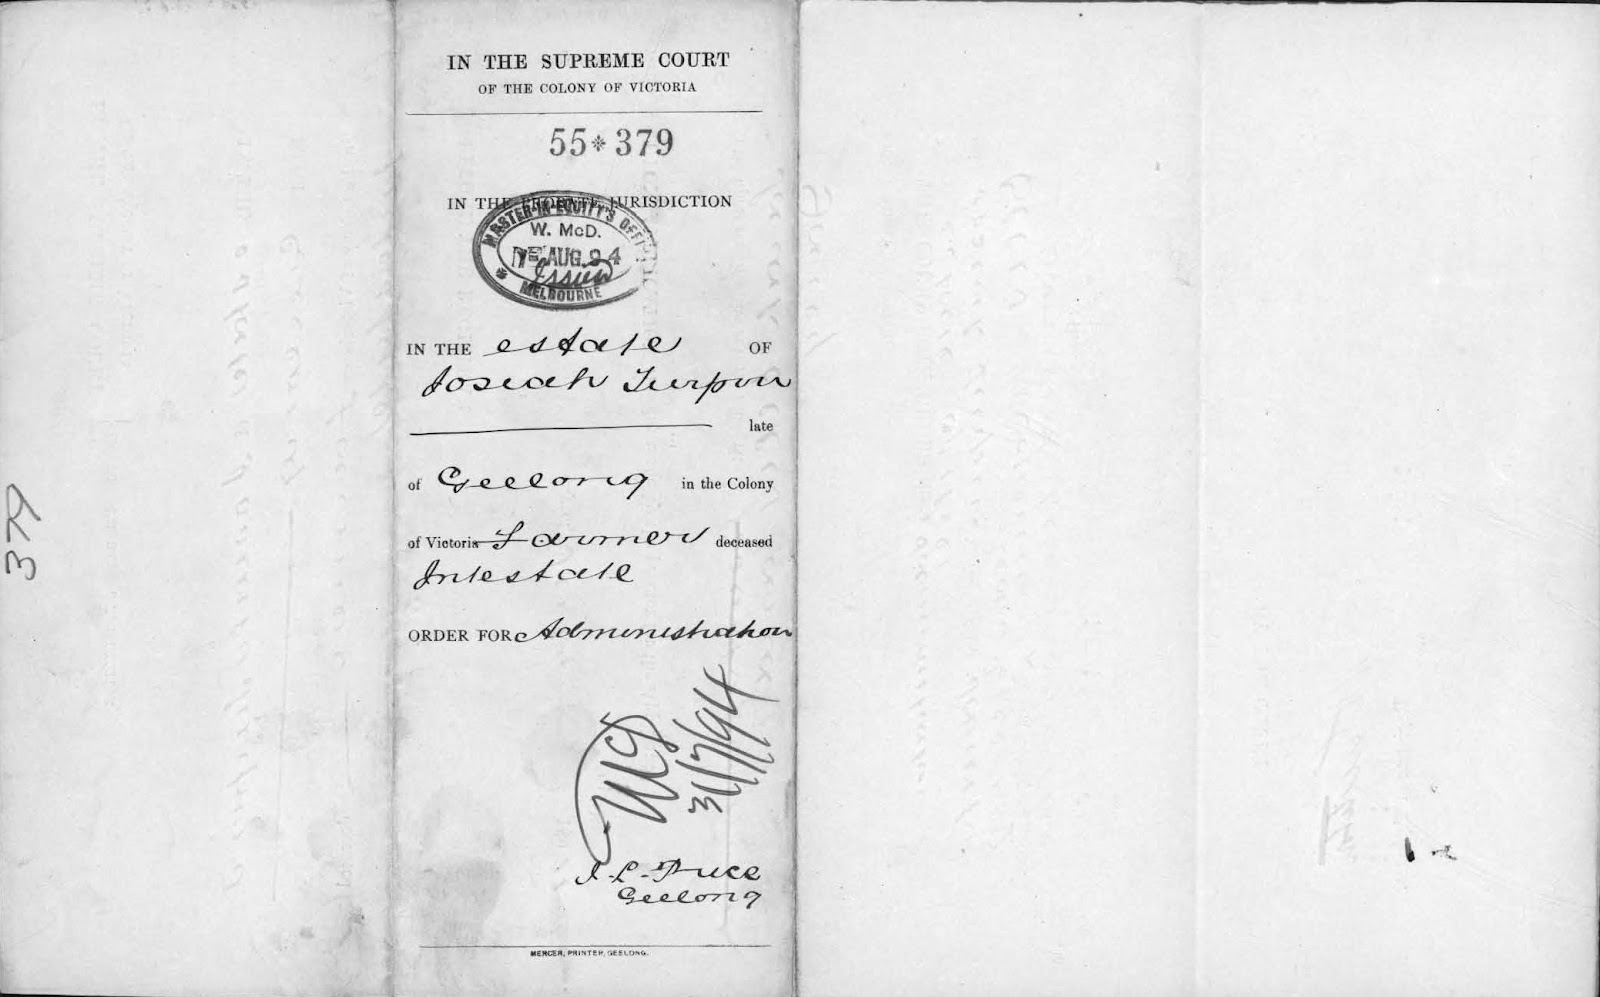 IN THE SUPREME COURT
OF THE COLONY OF VICTORIA
55 * 379
IN THE PROBATE JURISDICTION
MASTER-IN-EQUITY'S OFFICE
W. McD.
AUG. 94
Issued
MELBOURNE
IN THE estate OF
Josiah Turpin
late
of Geelong in the Colony
of Victoria Farmer deceased
Intestate
ORDER FOR Administration
31/7/94
J. L. Price
Geelong
MERCER, PRINTER, GEELONG.
379